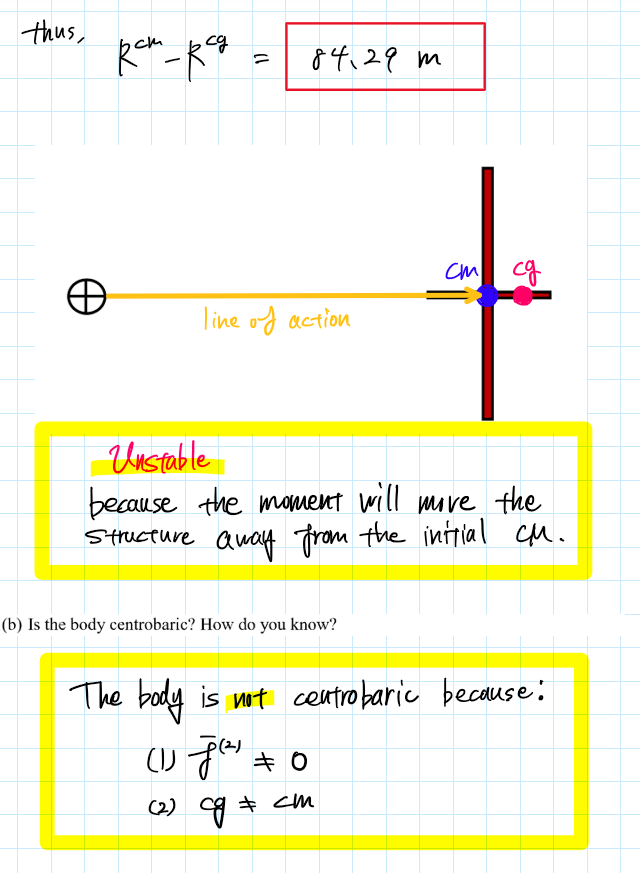 thus,
R^cm - R^cg = 84.29 m
cm cg
line of action
Unstable
because the moment will move the
structure away from the initial CM.
(b) Is the body centrobaric? How do you know?
The body is not centrobaric because:
(1) f̄^(2) ≠ 0
(2) cg ≠ cm